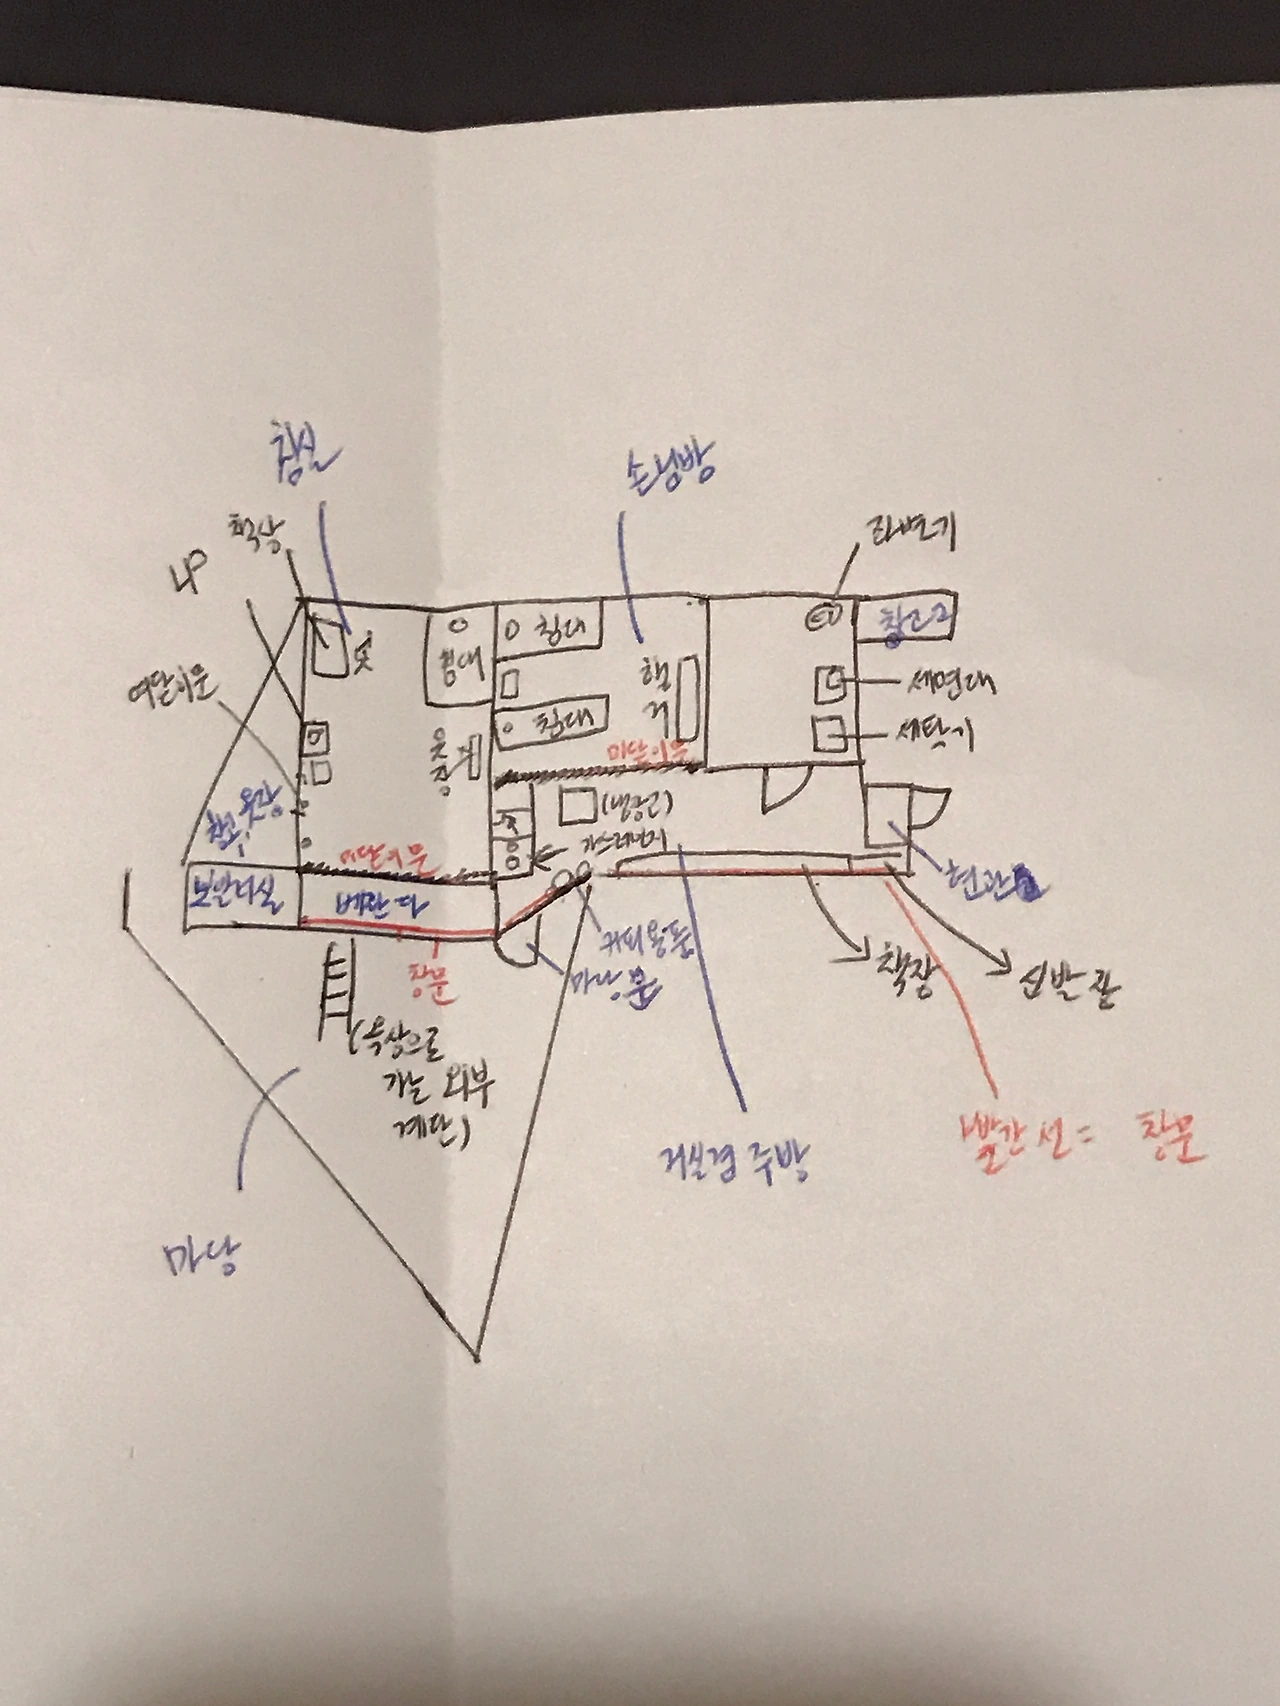 침실
손님방
책상
LP
좌변기
창고2
옷
침대
침대
행
거
세면대
여닫이문
침대
옷
장
세탁기
미닫이문
창고, 옷장
(냉장고)
가스레인지
미닫이문
보일러실
베란다
현관
커피용품
창문
마당 문
책장
신발 관
(옥상으로
가는 외부
계단)
거실겸 주방
빨간 선 = 창문
마당